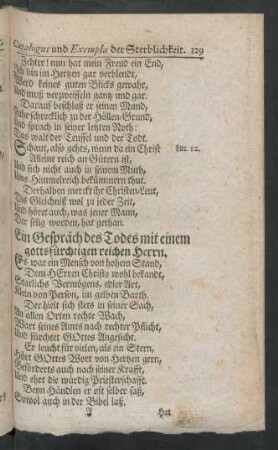 Catalogus und Exempla der Sterblichkeit. 129
Zehter! nun hat mein Freud ein End,
Ich bin im Hertzen gar verblendt,
Werd keines guten Blicks gewahr,
Und muß verzweiffeln gantz und gar.
Darauf beschloß er seinen Mund,
Fuhr schrecklich zu der Höllen-Grund,
Und sprach in seiner letzten Noth:
Das walt der Teuffel und der Todt.
Schaut, also gehts, wenn da ein Christ Luc. 12.
Alleine reich an Gütern ist,
Und sich nicht auch in seinem Muth,
Ums Himmelreich bekümmern thut.
Derhalben merckt ihr Christen-Leut,
Das Gleichniß wol zu jeder Zeit,
Und höret auch, was jener Mann,
Der selig worden, hat gethan.
Ein Gespräch des Todes mit einem
gottsfürchtigen reichen Herrn.
Es war ein Mensch von hohem Stand,
Dem HErren Christo wohl bekandt,
Starlichs Vermögens, edler Art,
Klein von Person, im gelben Barth.
Der hielt sich stets in seiner Sach,
An allen Orten rechte Wach,
Wart seines Amts nach rechter Pflicht,
Und fürchtet GOttes Angesicht.
Er leucht für vielen, als ein Stern,
Hört GOttes Wort von Hertzen gern,
Befördertes auch nach seiner Krafft,
Und ehrt die würdig Priesterschafft.
Beyn Händlen er oft selber saß,
Sowol auch in der Bibel laß,
Hat